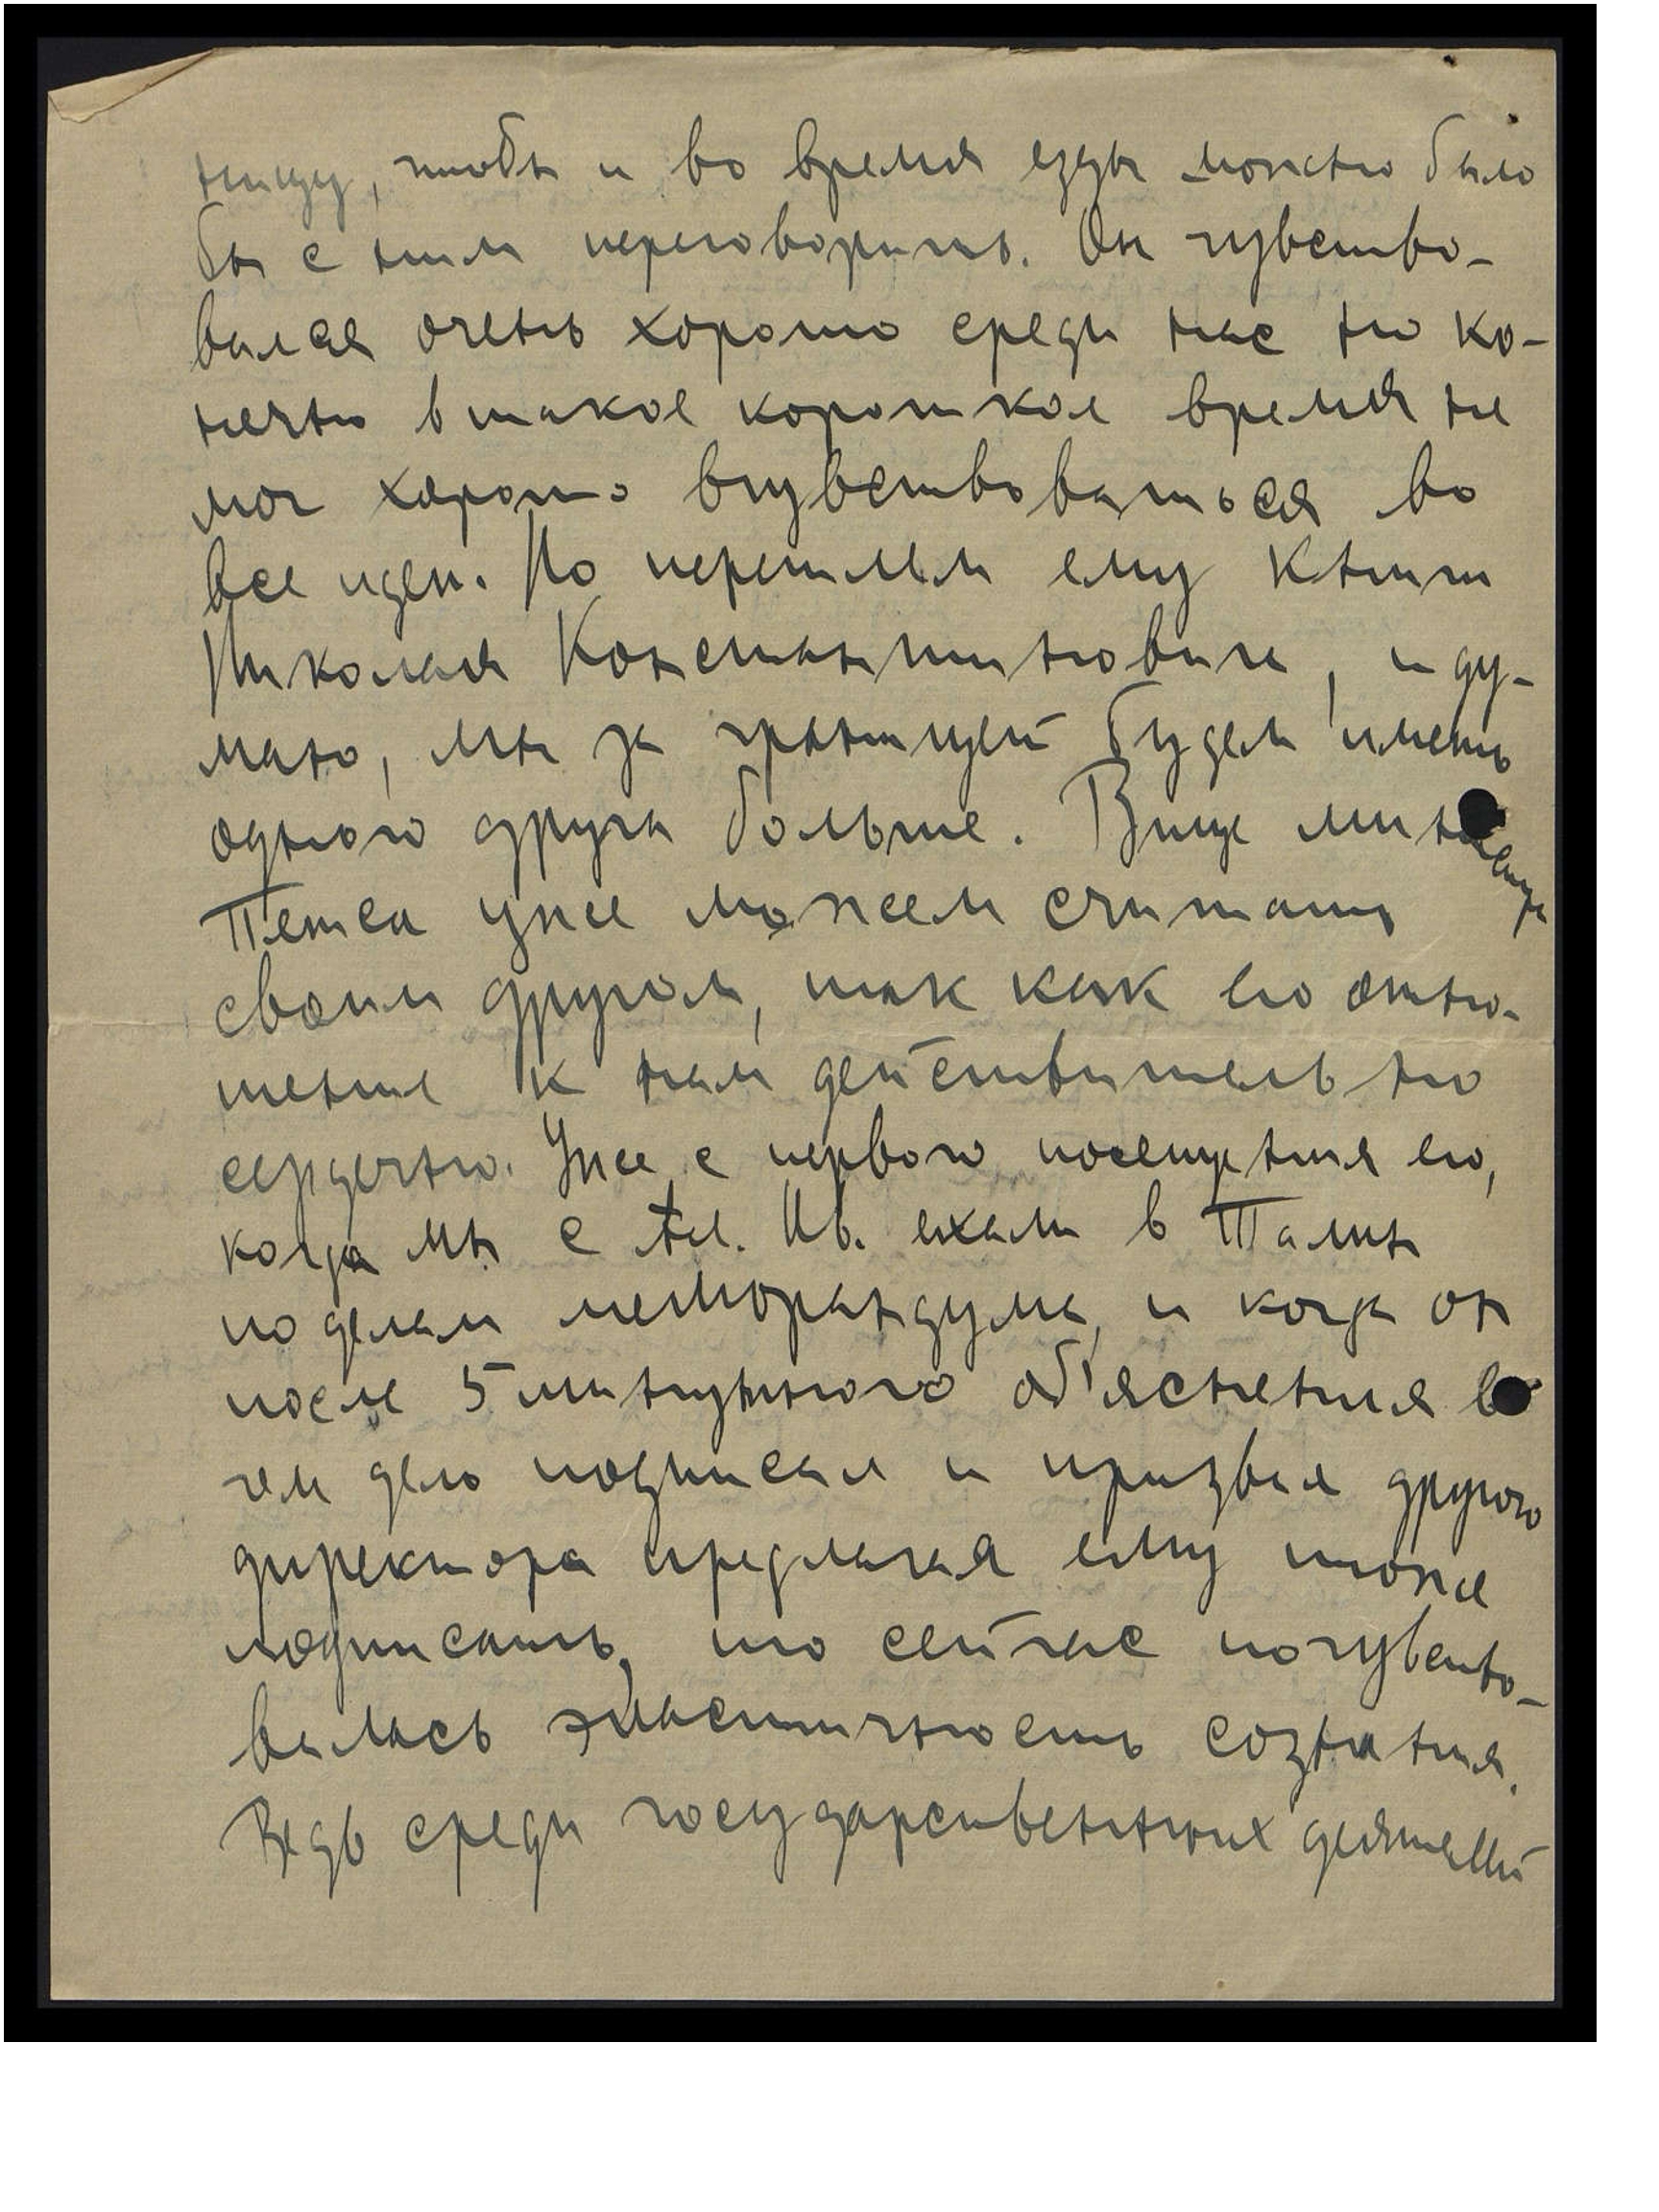 ницу, чтобы и во время езды можно было
бы с ним переговорить. Он чувство-
вался очень хорошо среди нас но ко-
нечно в такое короткое время не
мог хорошо вчувствоваться во
все идеи. Но перешлем ему книги
Николая Константиновича, и ду-
маю, мы за границей будем иметь
одного друга больше. Вице министра
Петса уже можем считать
своим другом, так как его отно-
шение к нам действительно
сердечно. Уже с первого посещения его,
когда мы с Ал. Ив. ехали в Талин
по делам меморандума, и когда он
после 5 минутного об'яснения в
чем дело подписал и призвал другого
директора предлагая ему тоже
подписать, то сейчас почувство-
валась эластичность сознания.
Ведь среди государственных деятелей